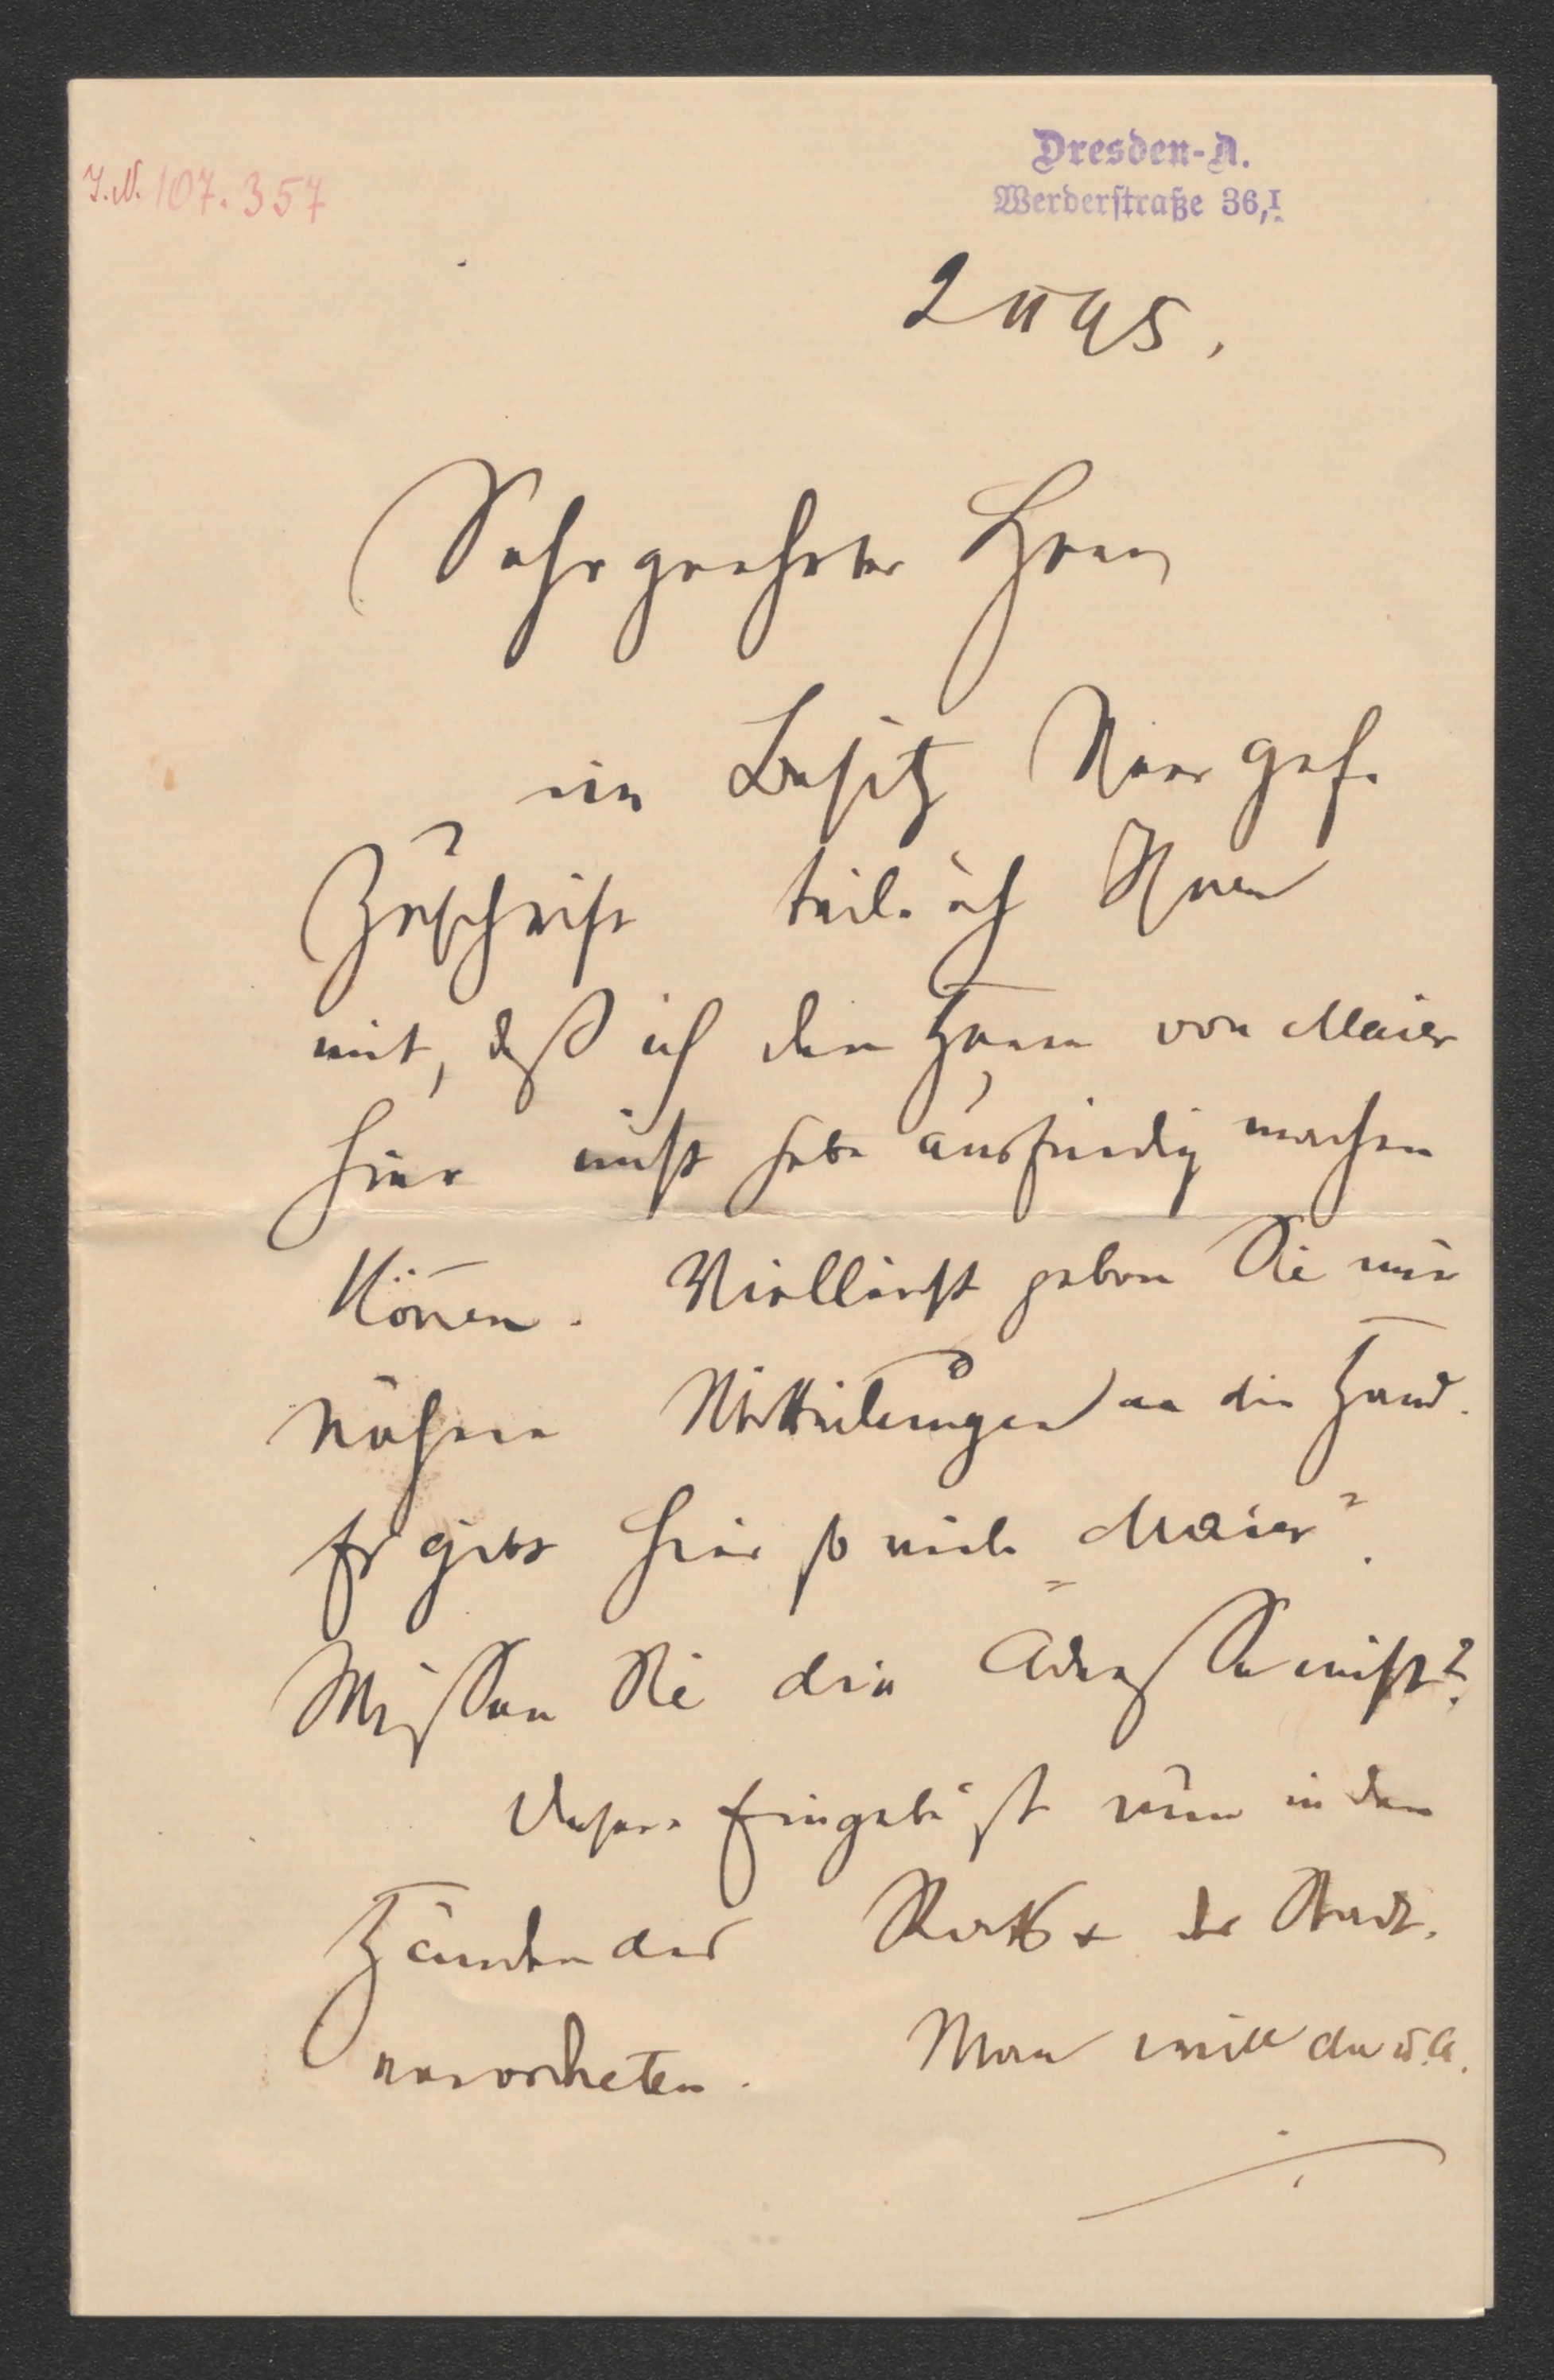 I.N. 107.357
Dresden-A.
Werderstraße 36, I.
2 II 95.
Sehr geehrter Herr
im Besitz Ihrer gef.
Zuschrift teile ich Ihnen
mit, daß ich den Herrn von Maier
hier nicht habe ausfindig machen
können. Vielleicht geben Sie mir
nähere Mitteilungen an die Hand.
Es gibt hier so viele „Maier“.
Wissen Sie die Adresse nicht?
Unsere Eingabe ist nun in den
Händen des Rates der Stadt-
verordneten. Man will da u. A.